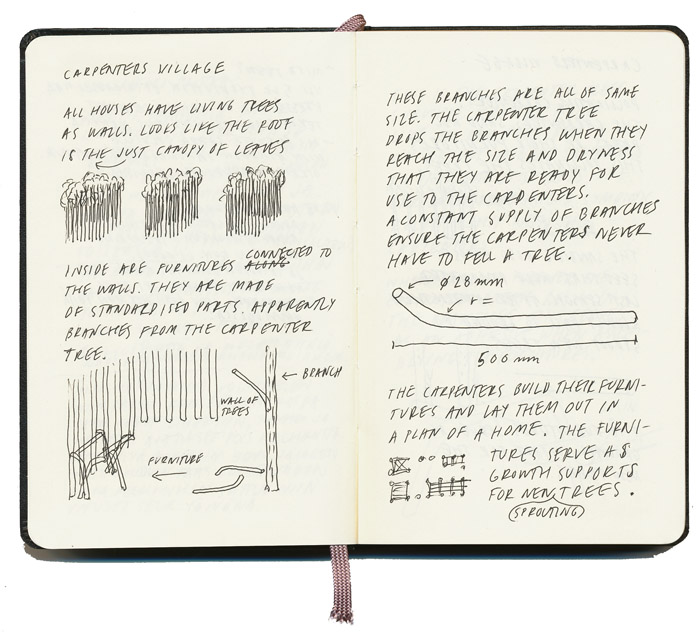 CARPENTERS VILLAGE
ALL HOUSES HAVE LIVING TREES
AS WALLS. LOOKS LIKE THE ROOF
IS THE JUST CANOPY OF LEAVES
INSIDE ARE FURNITURES ALONG CONNECTED TO
THE WALLS. THEY ARE MADE
OF STANDARDISED PARTS. APPARENTLY
BRANCHES FROM THE CARPENTER
TREE.
BRANCH
WALL OF
TREES
FURNITURE
THESE BRANCHES ARE ALL OF SAME
SIZE. THE CARPENTER TREE
DROPS THE BRANCHES WHEN THEY
REACH THE SIZE AND DRYNESS
THAT THEY ARE READY FOR
USE TO THE CARPENTERS.
A CONSTANT SUPPLY OF BRANCHES
ENSURE THE CARPENTERS NEVER
HAVE TO FELL A TREE.
ø 28 mm
r =
500 mm
THE CARPENTERS BUILD THEIR FURNI-
TURES AND LAY THEM OUT IN
A PLAN OF A HOME. THE FURNI-
TURES SERVE AS
GROWTH SUPPORTS
FOR NEW TREES.
(SPROUTING)